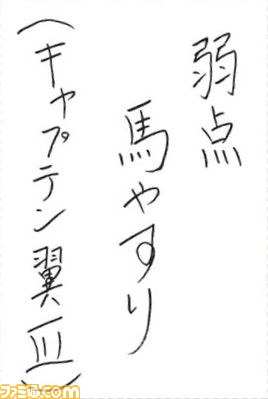 弱点
馬やすり
(キャプテン翼Ⅲ)
ファミ通.com